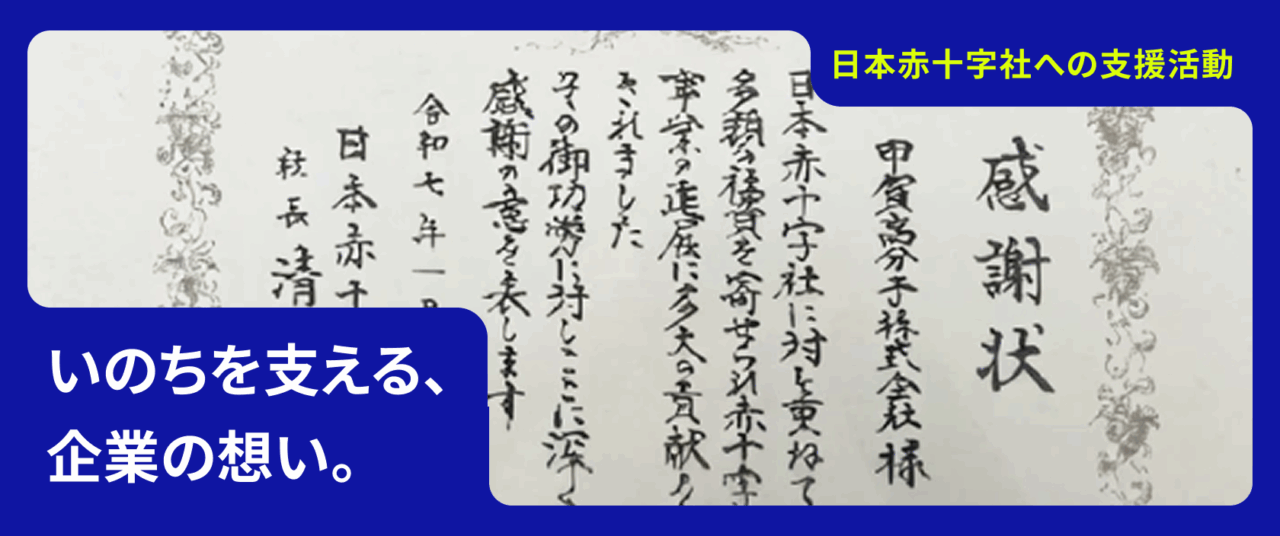 日本赤十字社への支援活動
感謝状
甲賀高分子株式会社様
日本赤十字社に対し重ねて
多額の浄資を寄せられ赤十字
事業の進展に多大の貢献を
されました
その御功労に対しここに深く
感謝の意を表します
令和七年一月
日本赤十
社長 清
いのちを支える、
企業の想い。